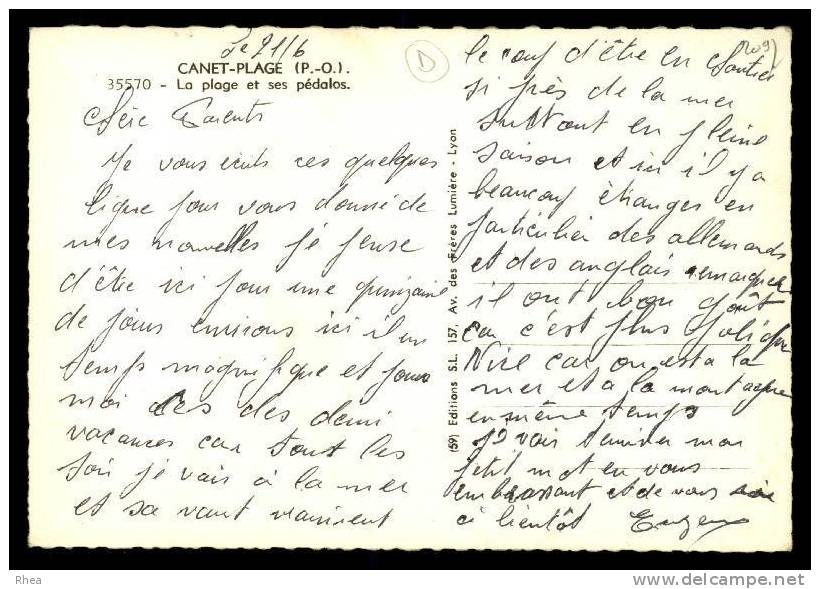 Le 21/6
CANET-PLAGE (P.-O.).
35570 - La plage et ses pédalos.
Chère Parents
Je vous écrits ces quelques
ligne pour vous donné de
mes nouvelles je pense
d'être ici pour une quinzaine
de jours environs ici il un
temps magnifique et pour
moi des des demi
vacances car tout les
soir je vais à la mer
et sa vaut vraiment
(59) Editions S.L. 157, Av. des Frères Lumière - Lyon
D
le coup d'être en chantier
si près de la mer
surtout en pleine
saison et ici il y a
beaucoup étranges en
particulier des allemands
et des anglais remarque
il ont bon goût
car c'est plus joli que
Nice car on est a la
mer et a la montagne
en même temps
je vais terminer mon
petit mot en vous
embrassant et de vous
à bientôt
Rhea
www.delcampe.net